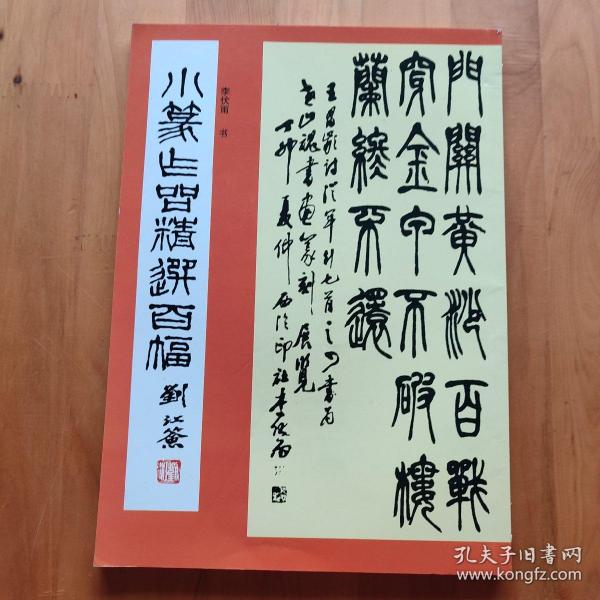 門關黃沙百戰
穿金甲不破樓
蘭終不還
王昌龄诗從軍行七首之四書為
老山魂書画篆刻展覽
丁卯夏仲西泠印社李伏雨
李伏雨 书
小篆 精選百幅
劉江簽
孔夫子旧书网
www.kongfz.com